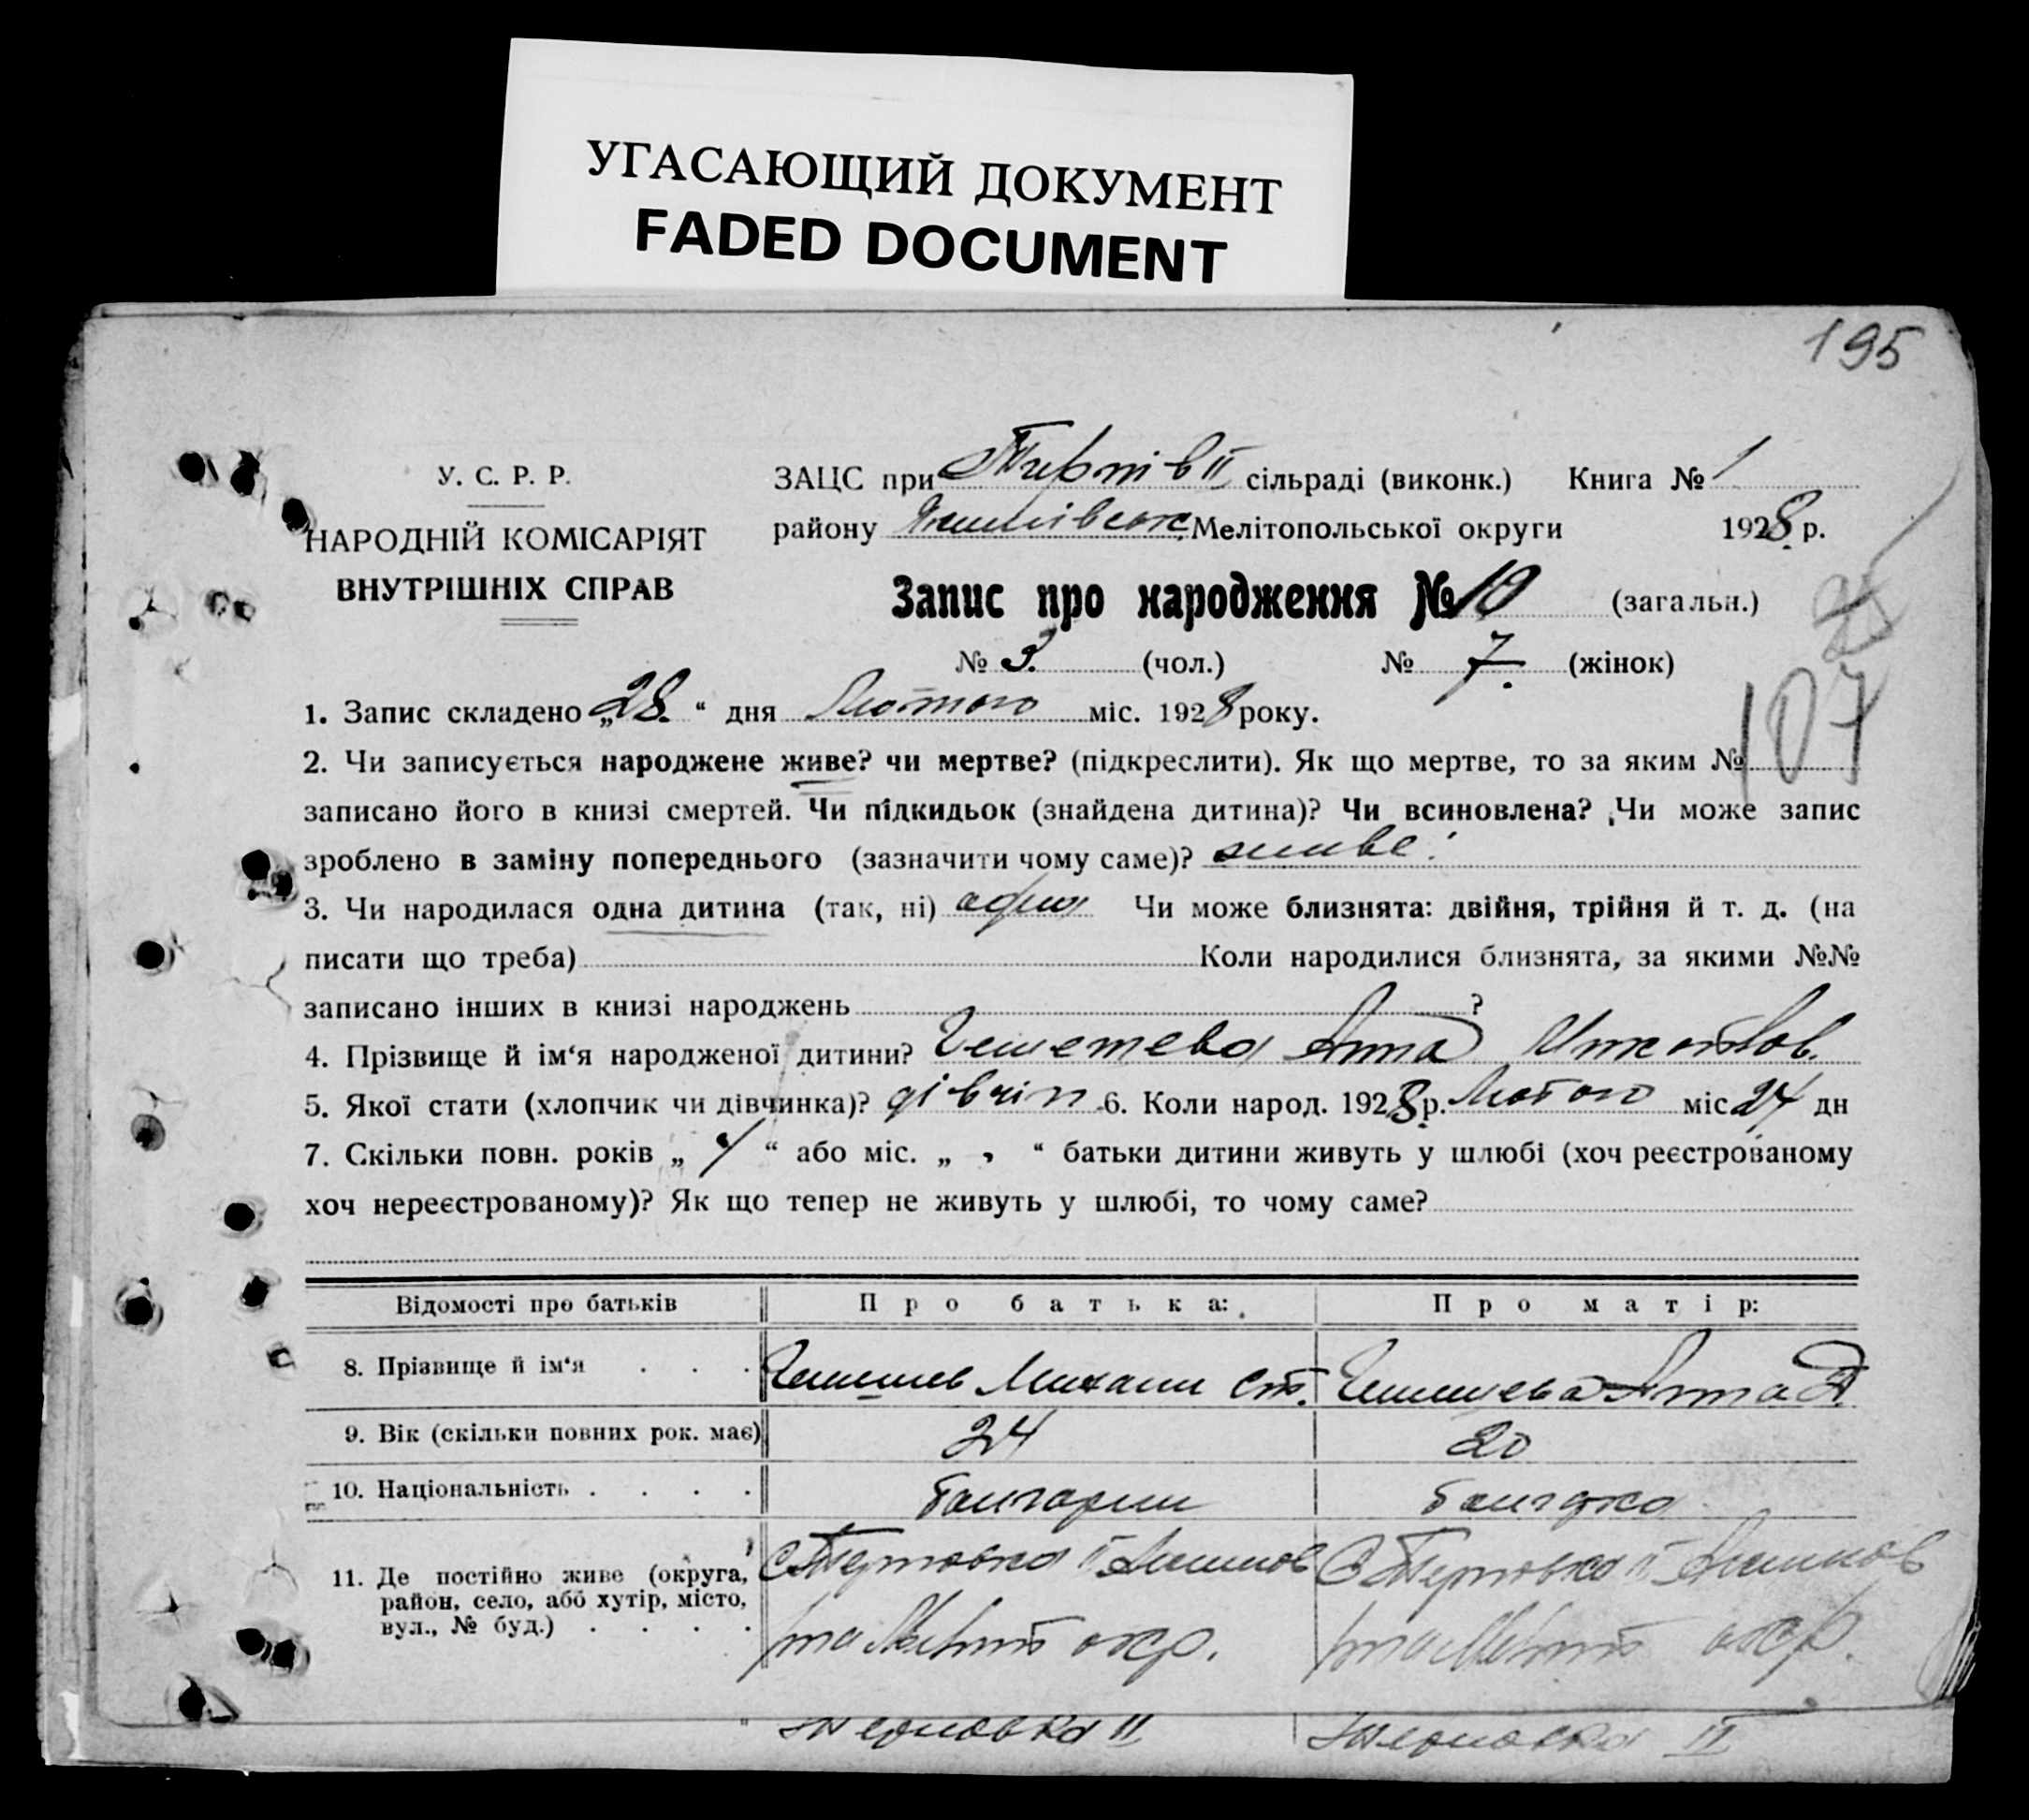 УГАСАЮЩИЙ ДОКУМЕНТ
FADED DOCUMENT
195
У. С. Р. Р.
НАРОДНІЙ КОМІСАРІЯТ
ВНУТРІШНІХ СПРАВ
ЗАЦС при II сільраді (виконк.) Книга № 1
району Мелітопольської округи 1928 р.
Запис про народження № 10 (загальн.)
№ 3. (чол.) № 7. (жінок)
107
1. Запис складено „28.“ дня Лютого міс. 1928 року.
2. Чи записується народжене живе? чи мертве? (підкреслити). Як що мертве, то за яким №
записано його в книзі смертей. Чи підкидьок (знайдена дитина)? Чи всиновлена? Чи може запис
зроблено в заміну попереднього (зазначити чому саме)? живе
3. Чи народилася одна дитина (так, ні) одна Чи може близнята: двійня, трійня й т. д. (на
писати що треба) Коли народилися близнята, за якими №№
записано інших в книзі народжень ?
4. Прізвище й ім‘я народженої дитини? Анна
5. Якої стати (хлопчик чи дівчинка)? дівчин 6. Коли народ. 1928 р. Лютого міс 24 дн
7. Скільки повн. років „ “ або міс. „ “ батьки дитини живуть у шлюбі (хоч реєстрованому
хоч нереєстрованому)? Як що тепер не живуть у шлюбі, то чому саме?
Відомості про батьків Про батька: Про матір:
8. Прізвище й ім‘я Михаил Ст. Анна Д
9. Вік (скільки повних рок. має) 24 20
10. Національність Болгарин Болгарка
11. Де постійно живе (округа,
район, село, або хутір, місто,
вул., № буд.)
II II
окр. окр.
II II